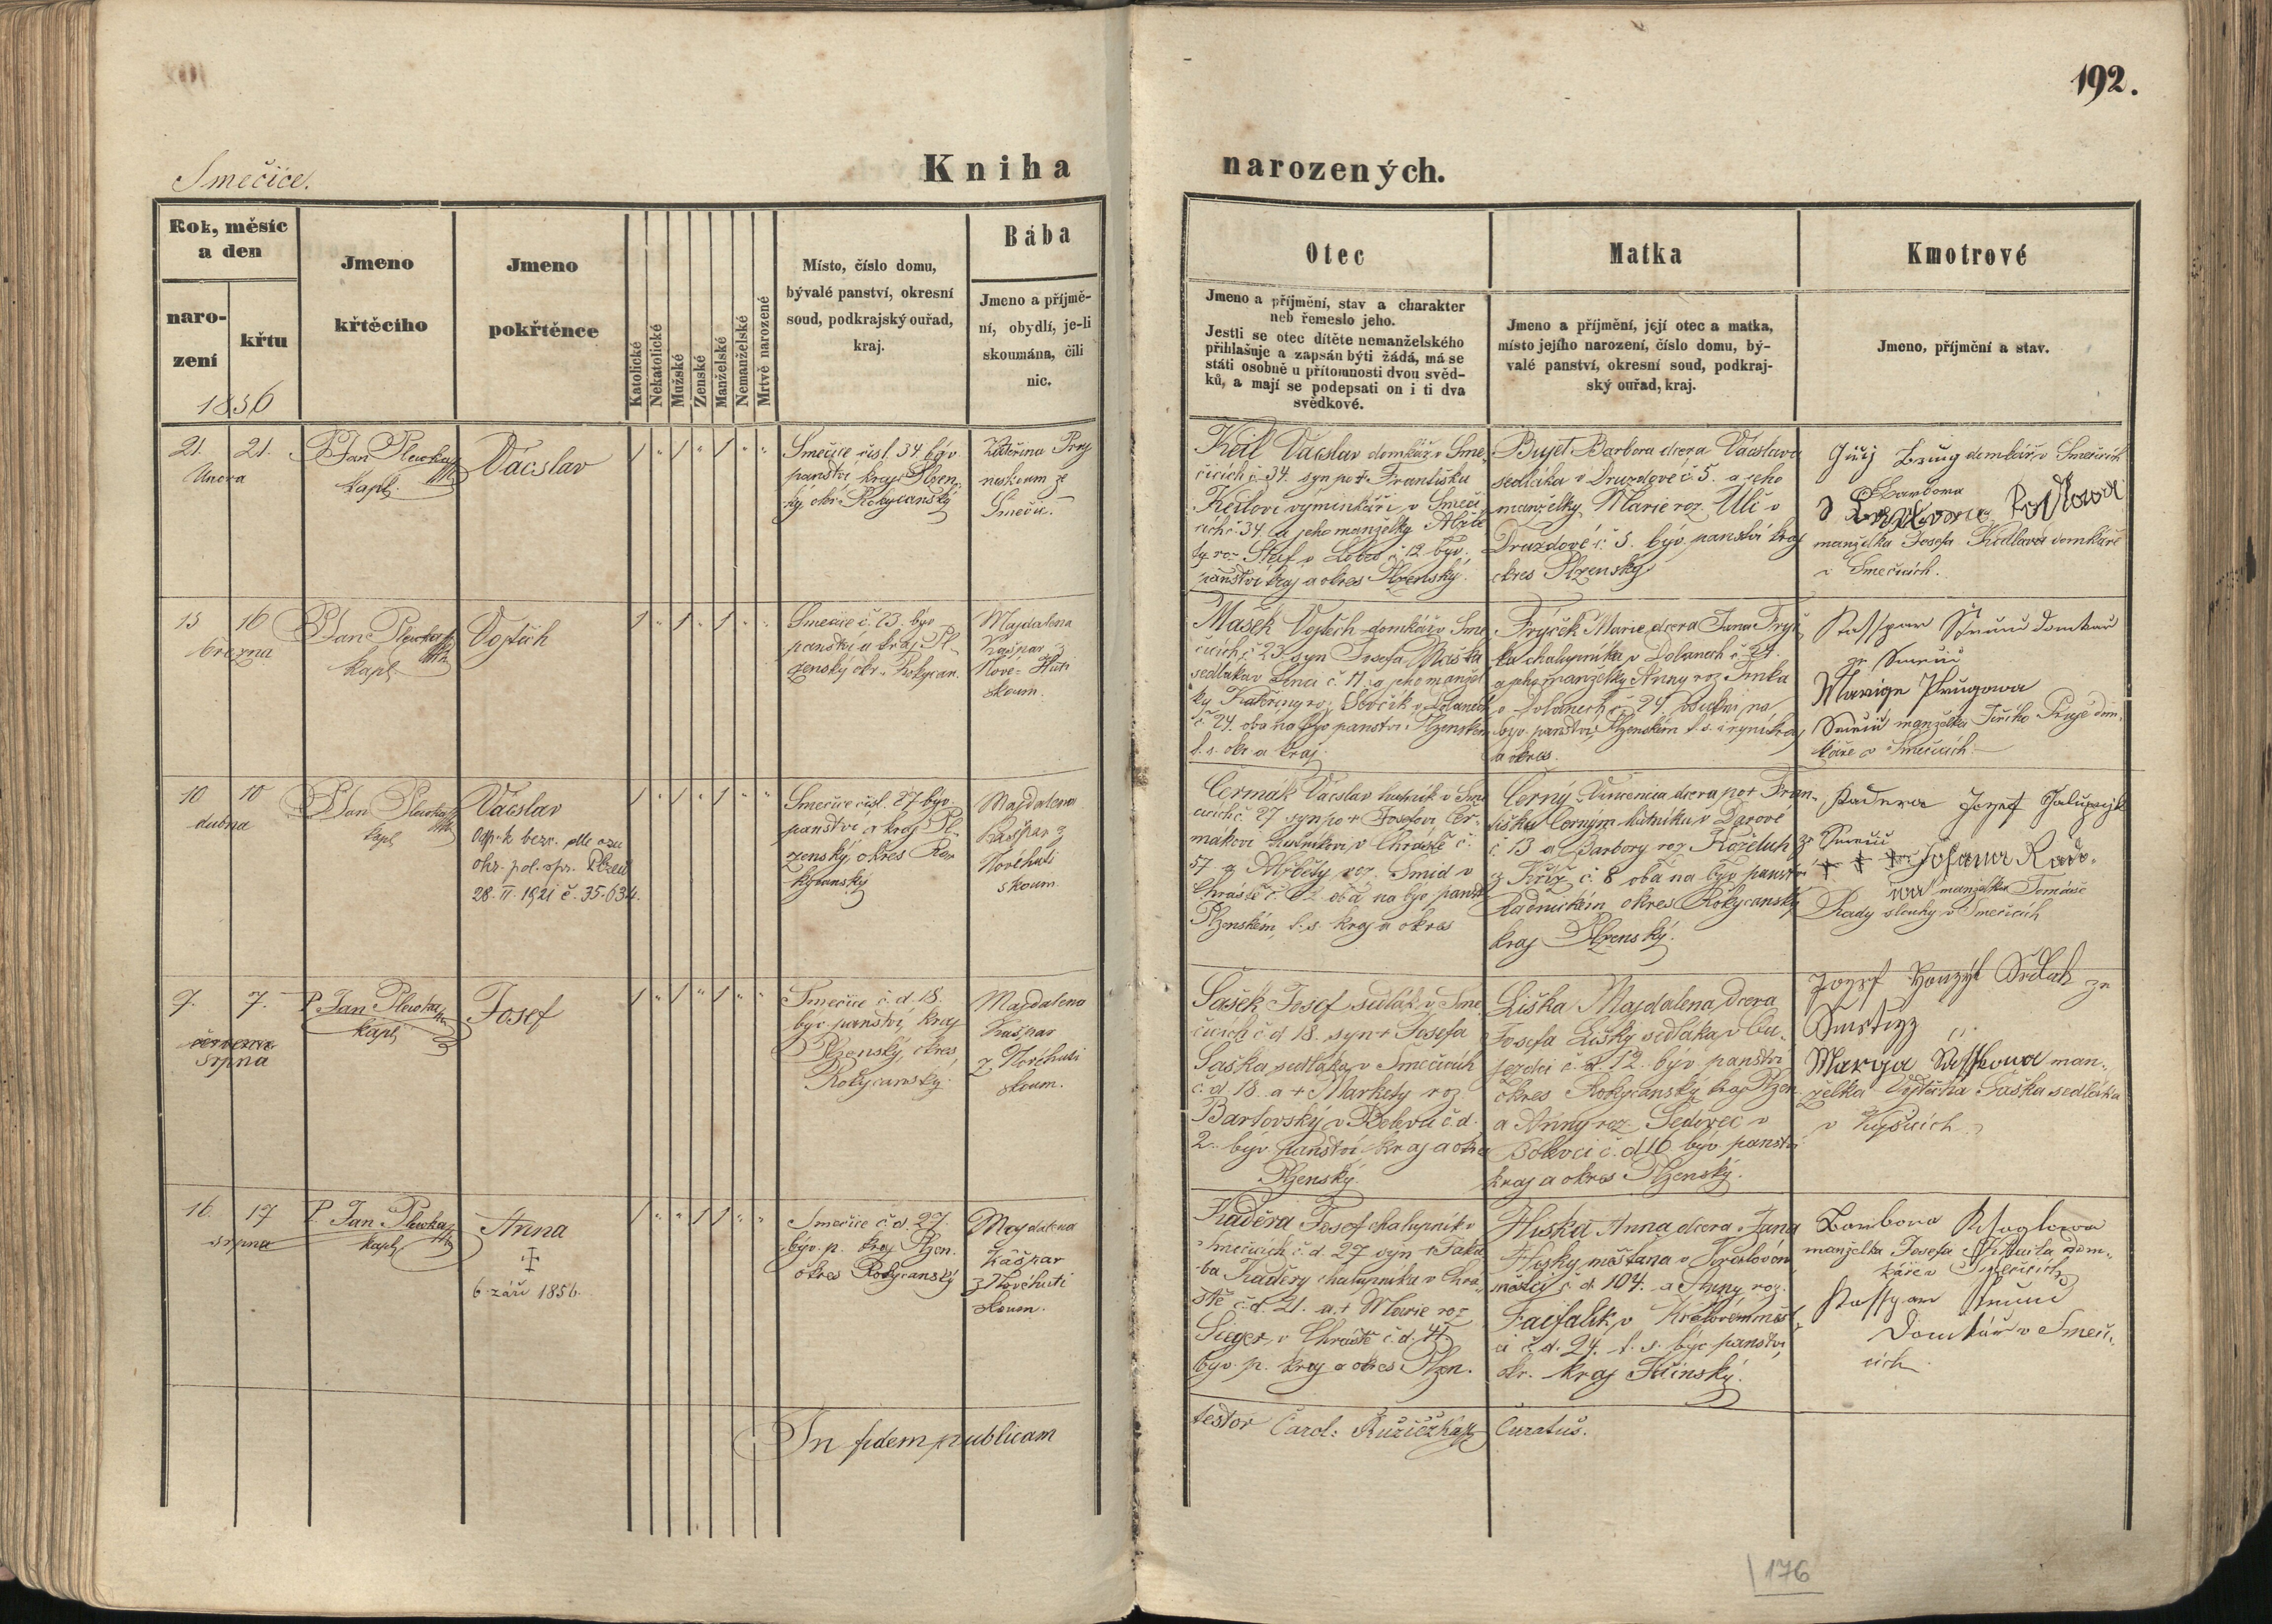 192.
Smečice.
Kniha narozených.
Rok, měsíc
a den
naro-
zení
křtu
1856
Jmeno
křtěcího
Jmeno
pokřtěnce
Katolické
Nekatolické
Mužské
Ženské
Manželské
Nemanželské
Mrtvě narozené
Místo, číslo domu,
bývalé panství, okresní
soud, podkrajský ouřad,
kraj.
Bába
Jmeno a příjmě-
ní, obydlí, je-li
skoumána, čili
nic.
Otec
Jmeno a příjmění, stav a charakter
neb řemeslo jeho.
Jestli se otec dítěte nemanželského
přihlašuje a zapsán býti žádá, má se
státi osobně u přítomnosti dvou svěd-
ků, a mají se podepsati on i ti dva
svědkové.
Matka
Jmeno a příjmění, její otec a matka,
místo jejího narození, číslo domu, bý-
valé panství, okresní soud, podkraj-
ský ouřad, kraj.
Kmotrové
Jmeno, příjmění a stav.
21. 21.
Února
P. Jan Plevka
kapl.
Vácslav
1 " 1 " 1 " "
Smečice čisl. 34 býv
panství kraj Plzen-
ký okr. Rokycanský
Kateřina
neskoum z
Smečic.
Keil Vácslav domkář v Sme-
čicích č. 34. syn po † Františku
Keilovi výminkáři v Smeči-
cích č. 34. a jeho manželky Alžbě
ty roz. v č. 12 býv.
panství kraj a okres Plzenský.
Bujet Barbora dcera Vácslava
sedláka v Druzdové č. 5. a jeho
manželky Marie roz. Ulč v
Druzdové č. 3. býv. panství kraj
okres Plzenský
Jiříj domkář v Smečicích
Barbora
manželka Josefa domkáře
v Smečicích.
15 16
března
P. Jan Plevka
kapl.
Vojtěch
1 " 1 " 1 " "
Smečice č. 23. býv
panství a kraj Pl-
zenský okr. Rokycan.
Majdalena
Kašpar z
Nové Huti
skoum.
Mašek Vojtěch domkář v Sme-
čicích, č. 23 syn Josefa Maška
sedláka v č. 11. a jeho manžel
ky Kateřiny roz. v Dolanech
č. 24. oba na býv panství Plzenském
t. s. okr. a kraj.
Frýček Marie dcera Jana Frýč
ka chalupníka v Dolanech č. 24.
a jeho manželky Anny roz.
v Dolanech č. 24. na
býv. panství Plzenském t. s. kraj
a okres.
domkář
ze Smečic
Marige Prugowa
Smečic manželka Jiřího Pruje dom-
káře v Smečicích.
10 10
dubna
P. Jan Plevka
kapl
Vácslav
Odp. k bezv. dle ozn.
okr. pol. spr. Plzeň
28. II. 1921 č. 35.634.
1 " 1 " 1 " "
Smečice čísl. 27 býv.
panství a kraj Pl-
zenský, okres Ro-
kycanský
Majdalena
Kašpar z
Novéhuti
skoum.
Čermák Vácslav hutník v Sme
čicích č. 27 syn po † Josefovi Čer-
mákovi hutníkovi v Chrástě č.
57 a Alžběty roz. Šmíd v
Chrástě č. 12 oba na býv panst
Plzenském, t. s. kraj a okres
Černý Vincencia dcera po † Fran-
tišku Černým hutníku v Darové
č. 13 a Barbory roz. Koželuh
z Kříž č. 8 oba na býv panství
Radnickém okres Rokycanský
kraj Plzenský.
Kadera Jozef
ze Smečic
† † † Johana Rado-
wa manželka Tomáše
Rady slouhy v Smečicích
7. 7.
července
srpna
P. Jan Plevka
kapl.
Josef
1 " 1 " 1 " "
Smečice č. d. 18.
býv. panství, kraj
Plzenský, okres
Rokycanský.
Majdalena
Kašpar
z Novéhuti
skoum.
Sašek Josef sedlák v Sme-
čicích č. d. 18. syn † Josefa
Saška sedláka v Smečicích
č. d. 18. a † Markéty roz.
Bartovský v Bolevci č. d.
2. býv panství kraj a okres
Plzenský.
Liška Majdalena dcera
Josefa Lišky sedláka v Bu-
jezdci č. d. 12. býv. panství
okres Rokycanský kraj Plzen.
a Anny roz. Sedovec v
Bolevci č. d. 16 býv panství
kraj a okres Plzenský.
Jozef Sedlak ze
Marya Sasskowa man-
želka Vojtěcha Saška sedláka
v Kyšicích.
16. 17
srpna
P. Jan Plevka
kapl.
Anna
†
6. září 1856.
1 " " 1 1 " "
Smečice č. d. 27
býv. p. kraj Plzen.
okres Rokycanský
Majdalena
Kašpar
z Novéhuti
skoum.
Kaděra Josef chalupník v
Smečicích č. d. 27 syn † Jaku
ba Kaděry chalupníka v Chrá-
stě č. d. 21. a † Marie roz
Sieger v Chrástě č. d. 41
býv. p. kraj a okres Plzen.
Huska Anna dcera Jana
Husky měštana v Královém
městci č. d. 104. a Anny roz.
v Královémměst-
ci č. d. 24. t. s. býv. panství,
okr. kraj Jičínský.
Barbora
manželka Josefa dom-
káře v Smečicích
Domkář v Smeči-
cích.
In fidem publicam
testor Carol: Růžička
Curatus.
176